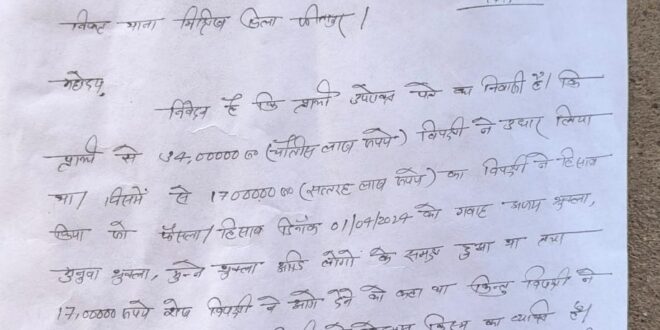 निकट थाना मिश्रिख जिला सीतापुर।
महोदय,
निवेदन है कि प्रार्थी उपरोक्त पते का निवासी है। कि
प्रार्थी से 34,00000 रु० (चौंतीस लाख रुपये) विपक्षी ने उधार लिया
था। जिसमें से 1700000 रु० (सत्तरह लाख रुपये) का विपक्षी ने हिसाब
किया जो फैसला/हिसाब दिनाँक 01/04/2024 को गवाह अजय शुक्ला,
मुनुवा शुक्ला, मुन्ने शुक्ला आदि लोगो के समक्ष हुआ था तथा
17,00000 रुपये शेष विपक्षी ने आगे देने को कहा था किन्तु विपक्षी ने
किस्म का व्यक्ति है।